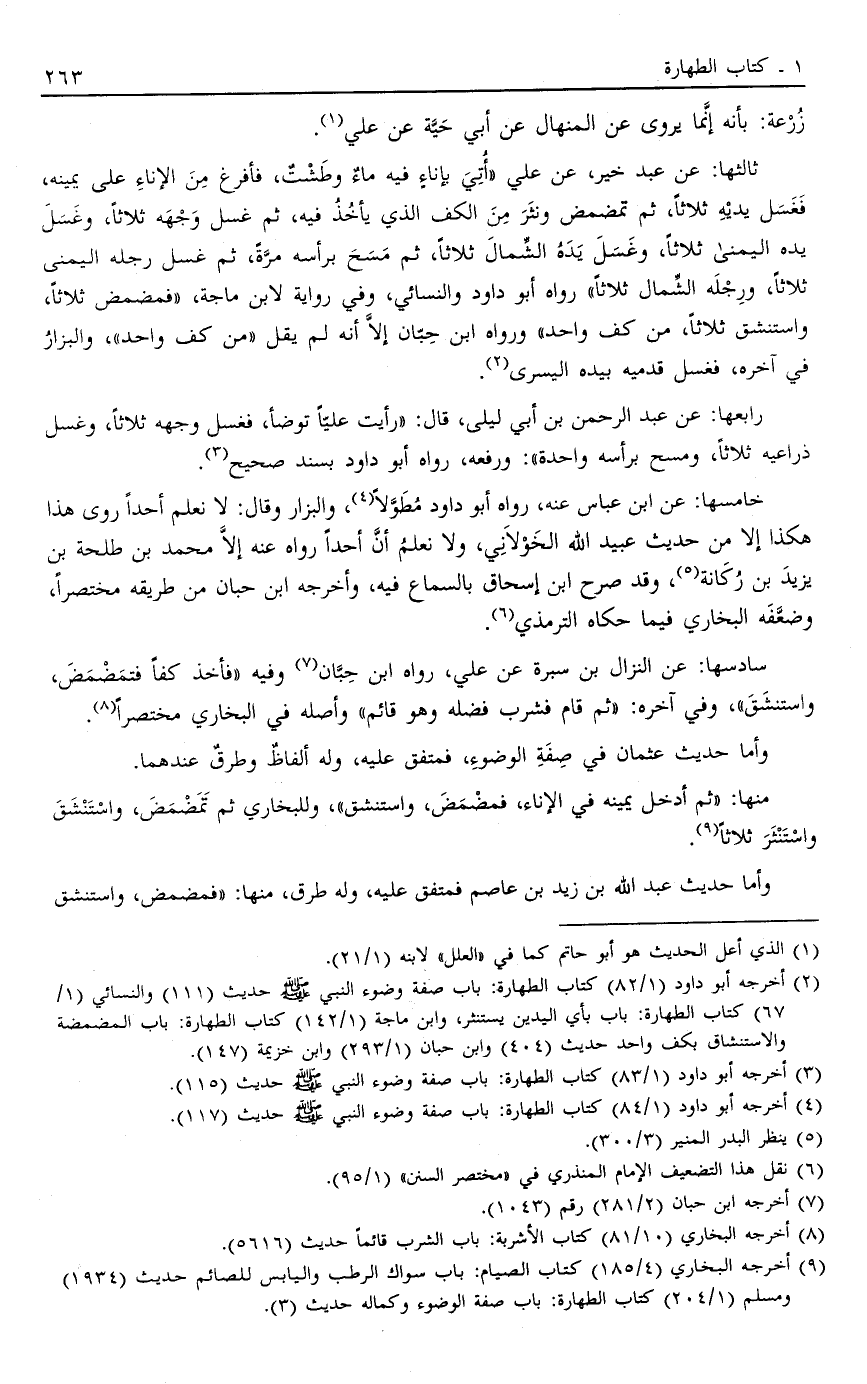 ١ ـ كتاب الطهارة ٢٦٣
زُرْعة: بأنه إنَّما يروى عن المنهال عن أبي حَيَّة عن علي(١).
ثالثها: عن عبد خير، عن علي «أُتِيَ بإناءٍ فيه ماءٌ وطَشْتٌ، فأفرغ مِنَ الإناءِ على يمينه،
فَغَسَل يديْهِ ثلاثاً، ثم تمضمض ونثَرَ مِنَ الكف الذي يأخُذُ فيه، ثم غسل وَجْهَه ثلاثاً، وغَسَلَ
يده اليمنىٰ ثلاثاً، وغَسَلَ يَدَهُ الشِّمالَ ثلاثاً، ثم مَسَحَ برأسه مرَّةً، ثم غسل رجله اليمنى
ثلاثاً، ورِجْلَه الشِّمال ثلاثاً» رواه أبو داود والنسائي، وفي رواية لابن ماجة، «فمضمض ثلاثاً،
واستنشق ثلاثاً، من كف واحد» ورواه ابن حِبّان إلاَّ أنه لم يقل «من كف واحد»، والبزارُ
في آخره، فغسل قدميه بيده اليسرى(٢).
رابعها: عن عبد الرحمن بن أبي ليلى، قال: «رأيت عليّاً توضأ، فغسل وجهه ثلاثاً، وغسل
ذراعيه ثلاثاً، ومسح برأسه واحدة»: ورفعه، رواه أبو داود بسند صحيح(٣).
خامسها: عن ابن عباس عنه، رواه أبو داود مُطَوَّلاً(٤)، والبزار وقال: لا نعلم أحداً روى هذا
هكذا إلا من حديث عبيد الله الخَوْلاَني، ولا نعلمُ أنَّ أحداً رواه عنه إلاَّ محمد بن طلحة بن
يزيدَ بن رُكَانة(٥)، وقد صرح ابن إسحاق بالسماع فيه، وأخرجه ابن حبان من طريقه مختصراً،
وضعَّفَه البخاري فيما حكاه الترمذي(٦).
سادسها: عن النزال بن سبرة عن علي، رواه ابن حِبَّان(٧) وفيه «فأخذ كفاً فتمَضْمَضَ،
واستنشَقَ»، وفي آخره: «ثم قام فشرب فضله وهو قائم» وأصله في البخاري مختصراً(٨).
وأما حديث عثمان في صِفَةِ الوضوءِ، فمتفق عليه، وله ألفاظٌ وطرقٌ عندهما.
منها: «ثم أدخل يمينه في الإناء، فمضْمَضَ، واستنشق»، وللبخاري ثم تَمَضْمَضَ، واسْتَنْشَقَ
واسْتَنْثَرَ ثلاثاً(٩).
وأما حديث عبد الله بن زيد بن عاصم فمتفق عليه، وله طرق، منها: «فمضمض، واستنشق
(١) الذي أعل الحديث هو أبو حاتم كما في «العلل» لابنه (٢١/١).
(٢) أخرجه أبو داود (٨٢/١) كتاب الطهارة: باب صفة وضوء النبي ﷺ حديث (١١١) والنسائي (١/
٦٧) كتاب الطهارة: باب بأي اليدين يستنثر، وابن ماجة (١٤٢/١) كتاب الطهارة: باب المضمضة
والاستنشاق بكف واحد حديث (٤٠٤) وابن حبان (٢٩٣/١) وابن خزيمة (١٤٧).
(٣) أخرجه أبو داود (٨٣/١) كتاب الطهارة: باب صفة وضوء النبي ﷺ حديث (١١٥).
(٤) أخرجه أبو داود (٨٤/١) كتاب الطهارة: باب صفة وضوء النبي ﷺ حديث (١١٧).
(٥) ينظر البدر المنير (٣٠٠/٣).
(٦) نقل هذا التضعيف الإمام المنذري في «مختصر السنن» (٩٥/١).
(٧) أخرجه ابن حبان (٢٨١/٢) رقم (١٠٤٣).
(٨) أخرجه البخاري (٨١/١٠) كتاب الأشربة: باب الشرب قائماً حديث (٥٦١٦).
(٩) أخرجه البخاري (١٨٥/٤) كتاب الصيام: باب سواك الرطب واليابس للصائم حديث (١٩٣٤)
ومسلم (٢٠٤/١) كتاب الطهارة: باب صفة الوضوء وكماله حديث (٣).